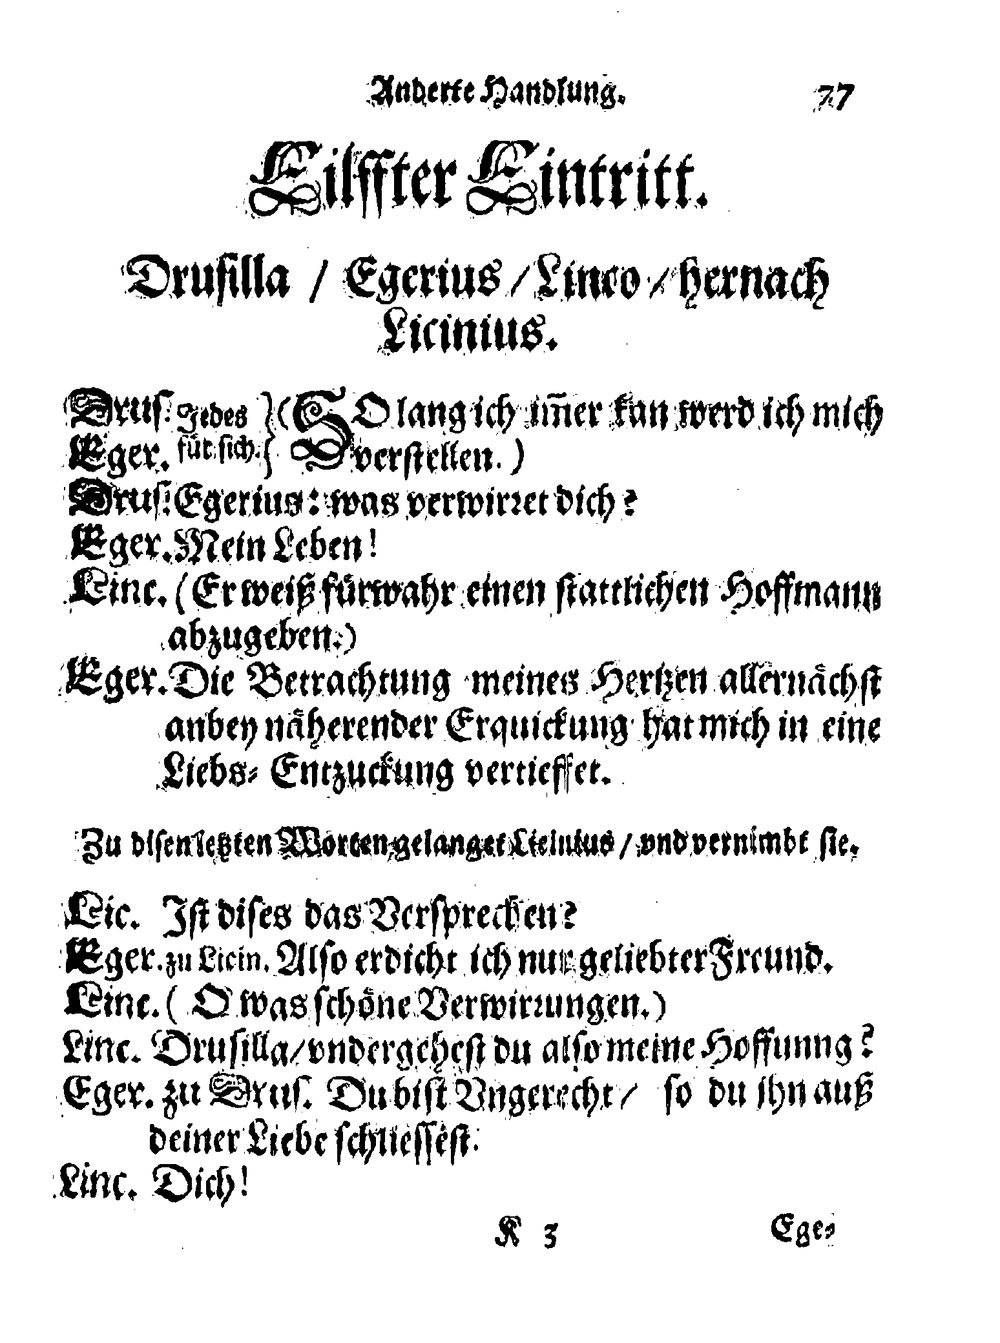 Anderte Handlung. 77
Eilffter Eintritt.
Drusilla / Egerius / Linco / hernach
Licinius.
Drus. Jedes }(SO lang ich im̅er kan werd ich mich
Eger. für sich.} verstellen.)
Drus. Egerius: was verwirret dich?
Eger. Mein Leben!
Linc. (Er weiß fürwahr einen stattlichen Hoffmann
abzugeben.)
Eger. Die Betrachtung meines Hertzen allernächst
anbey näherender Erquickung hat mich in eine
Liebs- Entzuckung vertieffet.
Zu disen letzten Worten gelanget Licinius / vnd vernimbt sie.
Lic. Ist dises das Versprechen?
Eger. zu Licin. Also erdicht ich nur geliebter Freund.
Linc. (O was schöne Verwirrungen.)
Linc. Drusilla / vndergehest du also meine Hoffunng?
Eger. zu Drus. Du bist Vngerecht / so du ihn auß
deiner Liebe schliessest.
Linc. Dich!
K 3 Ege-